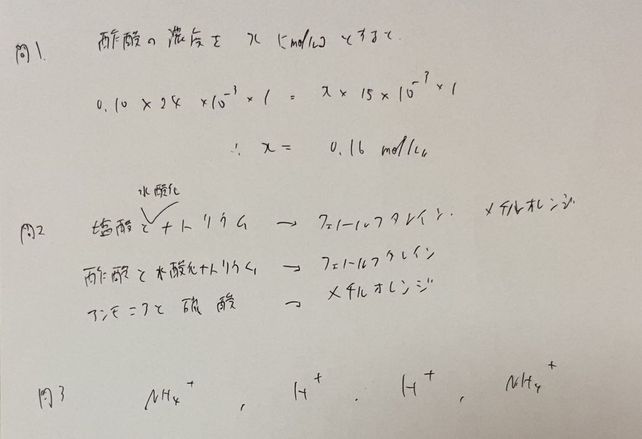 問1. 酢酸の濃度を x [mol/L] とすると
0.10 × 24 × 10⁻³ × 1 = x × 15 × 10⁻³ × 1
∴ x = 0.16 mol/L
水酸化
問2 塩酸と ナトリウム → フェノールフタレイン. メチルオレンジ
酢酸と水酸化ナトリウム → フェノールフタレイン
アンモニアと硫酸 → メチルオレンジ
問3 NH₄⁺ , H⁺ . H⁺ , NH₄⁺